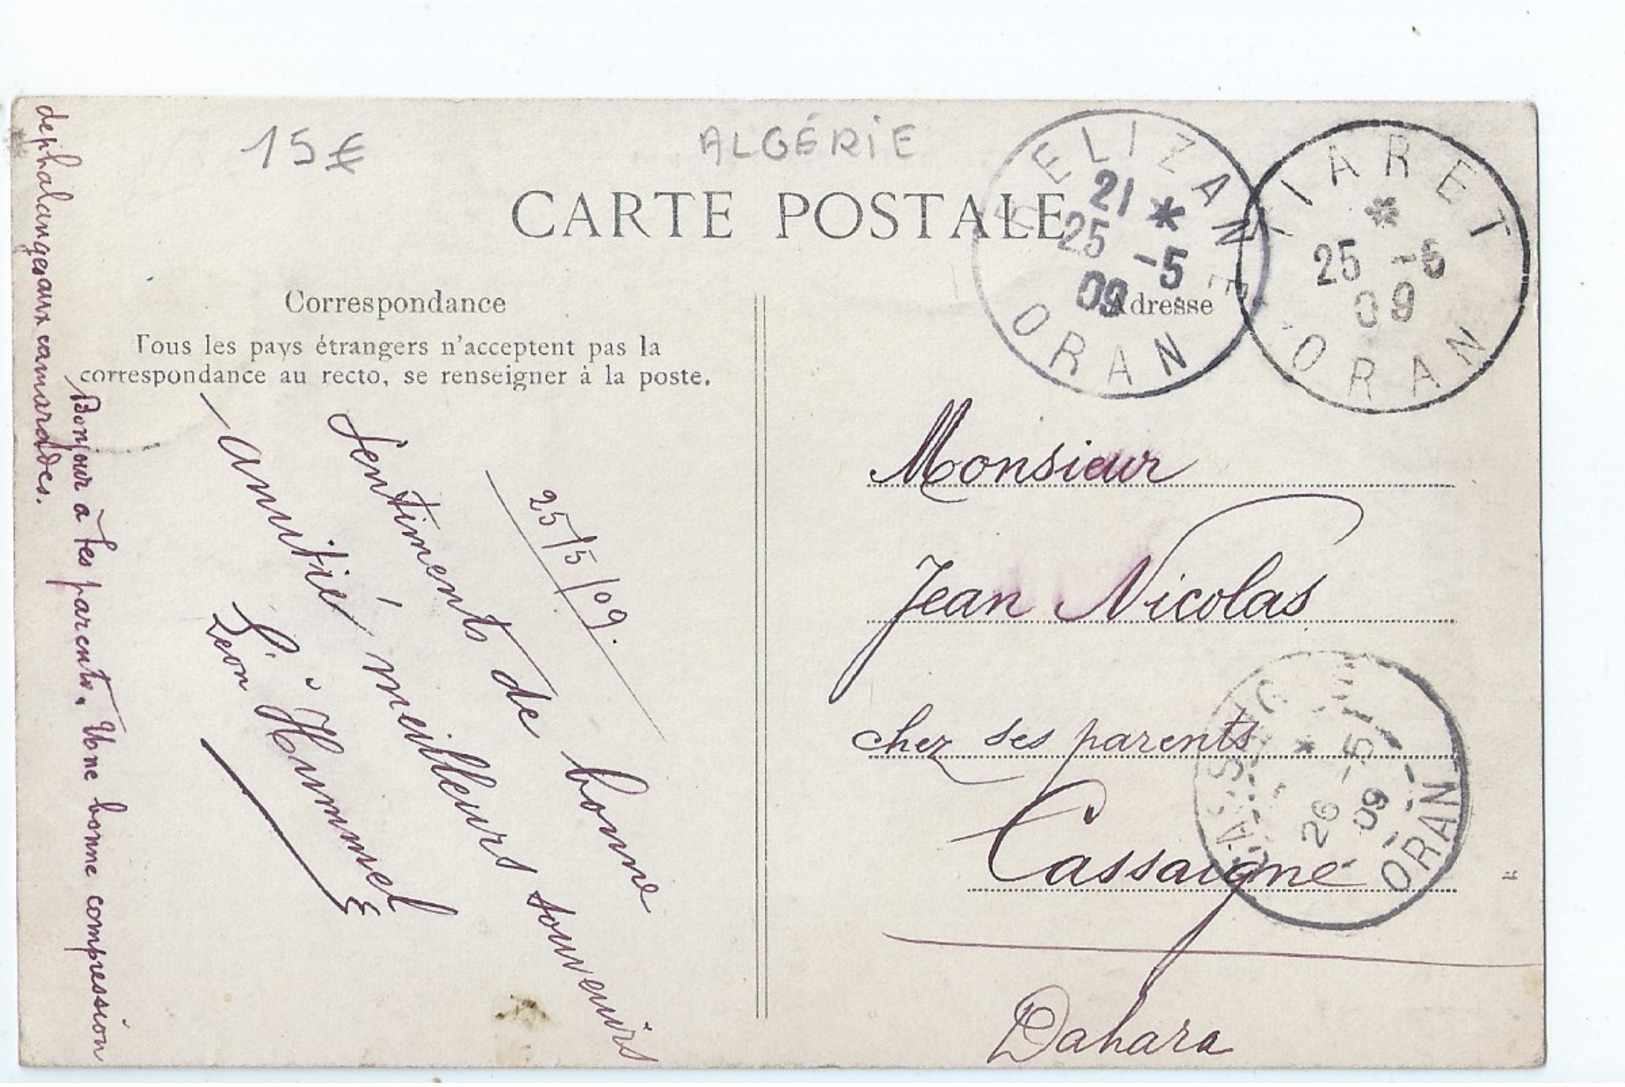 15€
ALGÉRIE
CARTE POSTALE
RELIZANE
21 *
25 -5
09
ORAN
TIARET
*
25 -5
09
ORAN
Correspondance
Tous les pays étrangers n'acceptent pas la
correspondance au recto, se renseigner à la poste.
Adresse
25/5/09.
Sentiments de bonne
amitié, meilleurs souvenirs
Léon Hummel
Bonjour à tes parents. Une bonne compression
de phalanges aux camarades.
Monsieur
Jean Nicolas
chez ses parents
Cassaigne
Dahara
CASSAIGNE
*
26 -5
09
ORAN